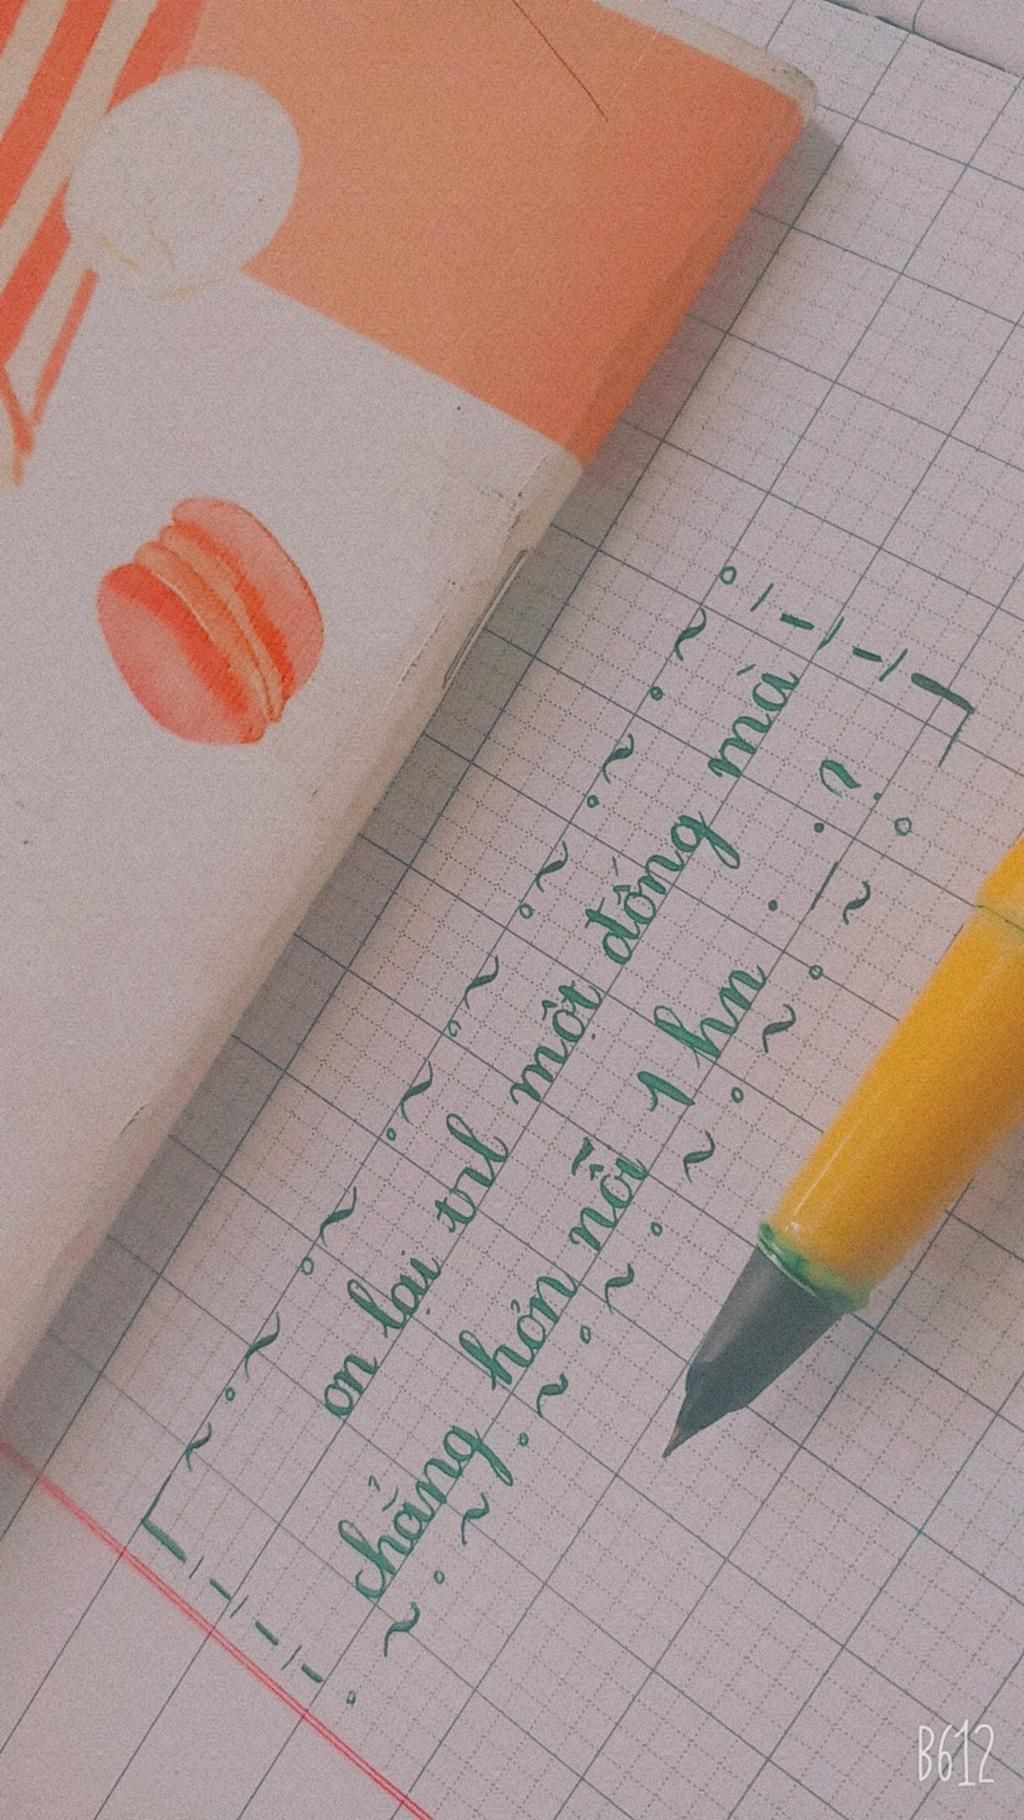 on lại trl một đống mà
chẳng hơn nỗi 1 hn . _ . ?
B612